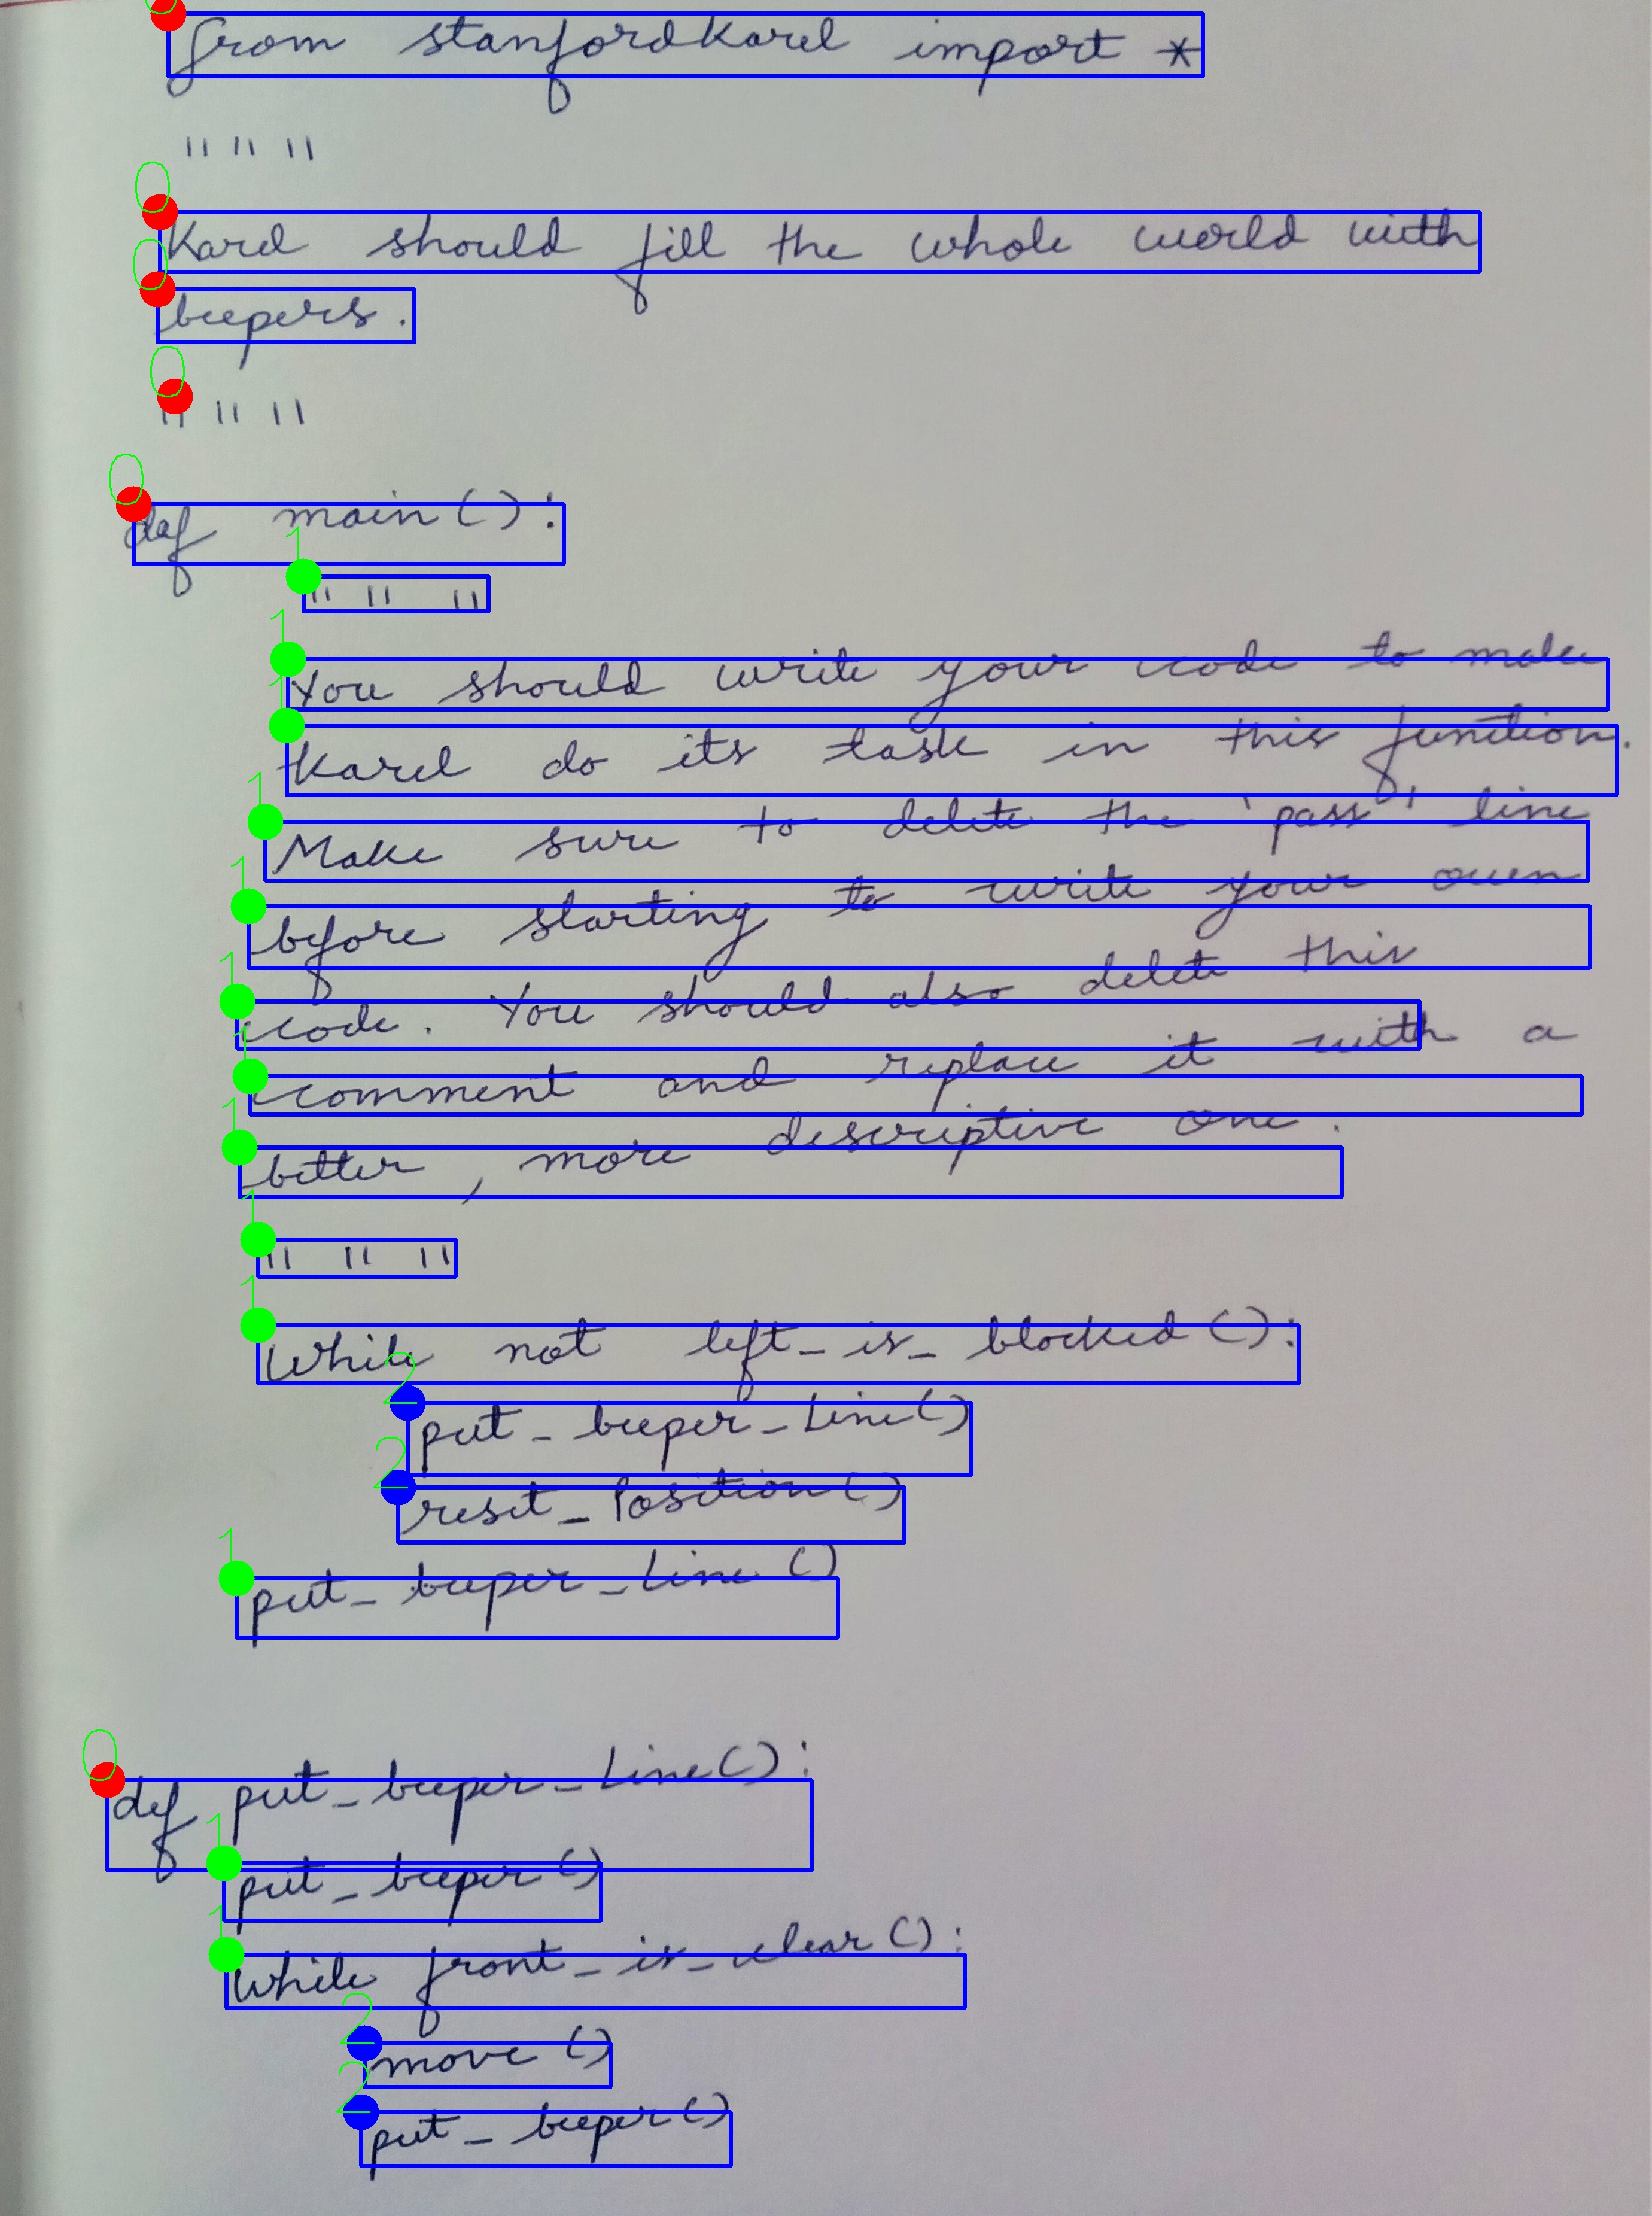 from stanfordkarel import *
" " "
Karel should fill the whole world with
beepers.
" " "
def main():
" " "
You should write your code to make
Karel do its task in this function.
Make sure to delete the 'pass' line
before starting to write your own
code. You should also delete this
comment and replace it with a
better, more descriptive one.
" " "
While not left_is_blocked():
put_beeper_line()
reset_Position()
put_beeper_line()
def put_beeper_line():
put_beeper()
While front_is_clear():
move()
put_beeper()